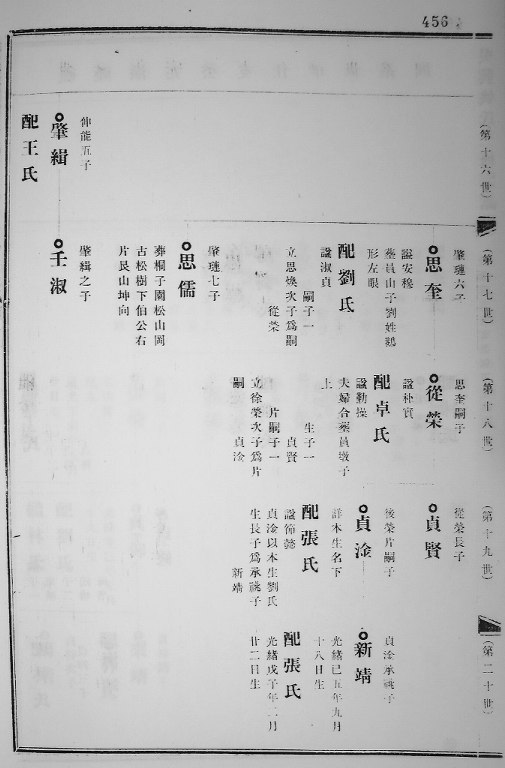 456
(第十六世)
伸能五子
肇緝
配王氏
(第十七世)
肇璉六子
思奎
諡安穆
葬員山子劉姓鵝
形左眼
配劉氏
諡淑貞
嗣子一
從榮
立思煥次子為嗣
肇璉七子
思儒
葬桐子園松山岡
古松樹下伯公右
片艮山坤向
肇緝之子
壬淑
(第十八世)
思奎嗣子
從榮
諡朴實
配卓氏
諡勤操
夫婦合葬員墩子
上
生子一
貞賢
片嗣子一
貞淦
立徐榮次子為片
嗣
(第十九世)
從榮長子
貞賢
後榮片嗣子
貞淦
詳本生名下
配張氏
諡節懿
貞淦以本生劉氏
生長子為承祧子
新靖
(第二十世)
貞淦承祧子
新靖
光緒己五年九月
十八日生
配張氏
光緒戊子年二月
廿二日生